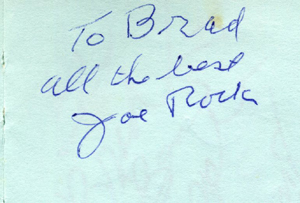 To Brad
all the best
Joe Rock